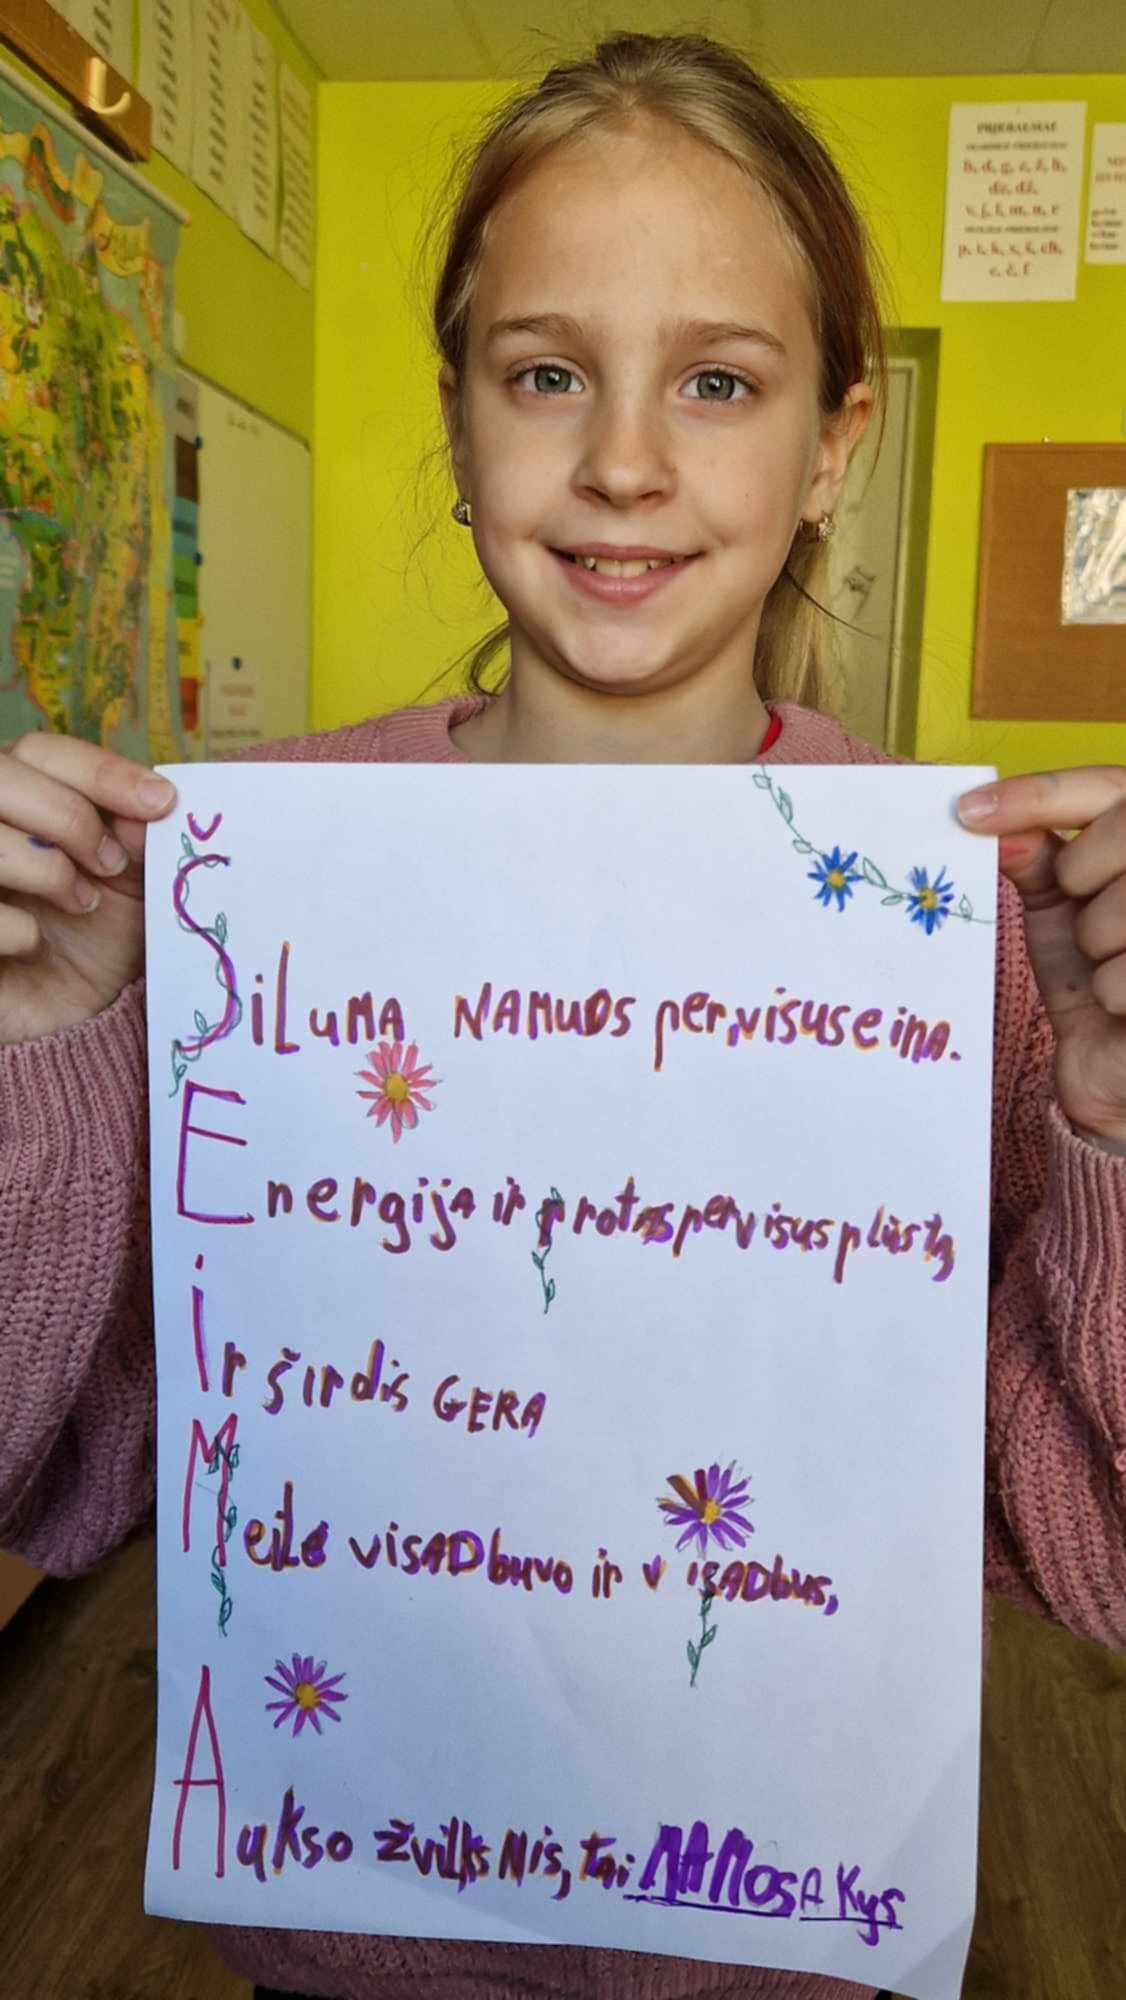 PRIEBALSIAI
b, d, g, z, ž, h,
dz, dž,
v, j, l, m, n, r
p, t, k, s, š, ch,
c, č, f
ŠiLuMA NAMuOS per,visuseina.
Energija ir protas per visus plūsta,
ir širdis GERA
Meilė visADbuvo ir visADbus,
Aukso žvilksnis, tai MAMos AKys